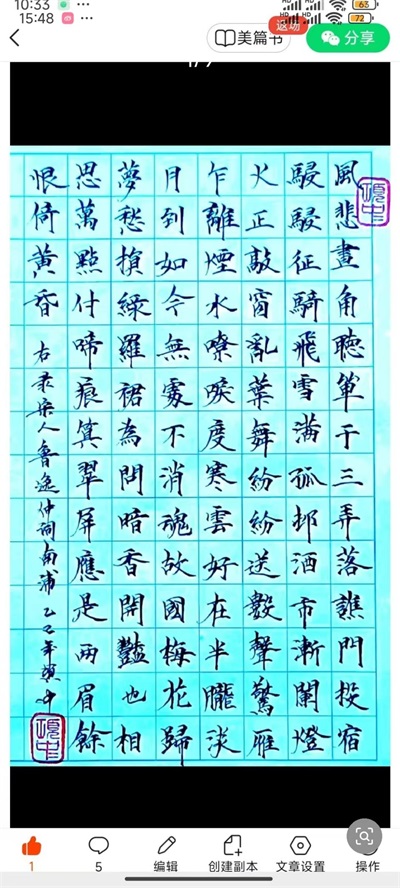 10:33
63
15:48
72
返场
美篇书
分享
風悲畫角聽單于三弄落譙門投宿
駸駸征騎飛雪滿孤邨酒市漸闌燈
火正敲窗亂葉舞紛紛送數聲驚雁
乍離煙水嘹唳度寒雲好在半朧淡
月到如今無處不消魂故國梅花歸
夢愁損綠羅裙為問暗香開豔也相
思萬點付啼痕算翠屏應是兩眉餘
恨倚黃昏 右录宋人魯逸仲詞南浦 乙巳年
1
5
编辑
创建副本
文章设置
操作